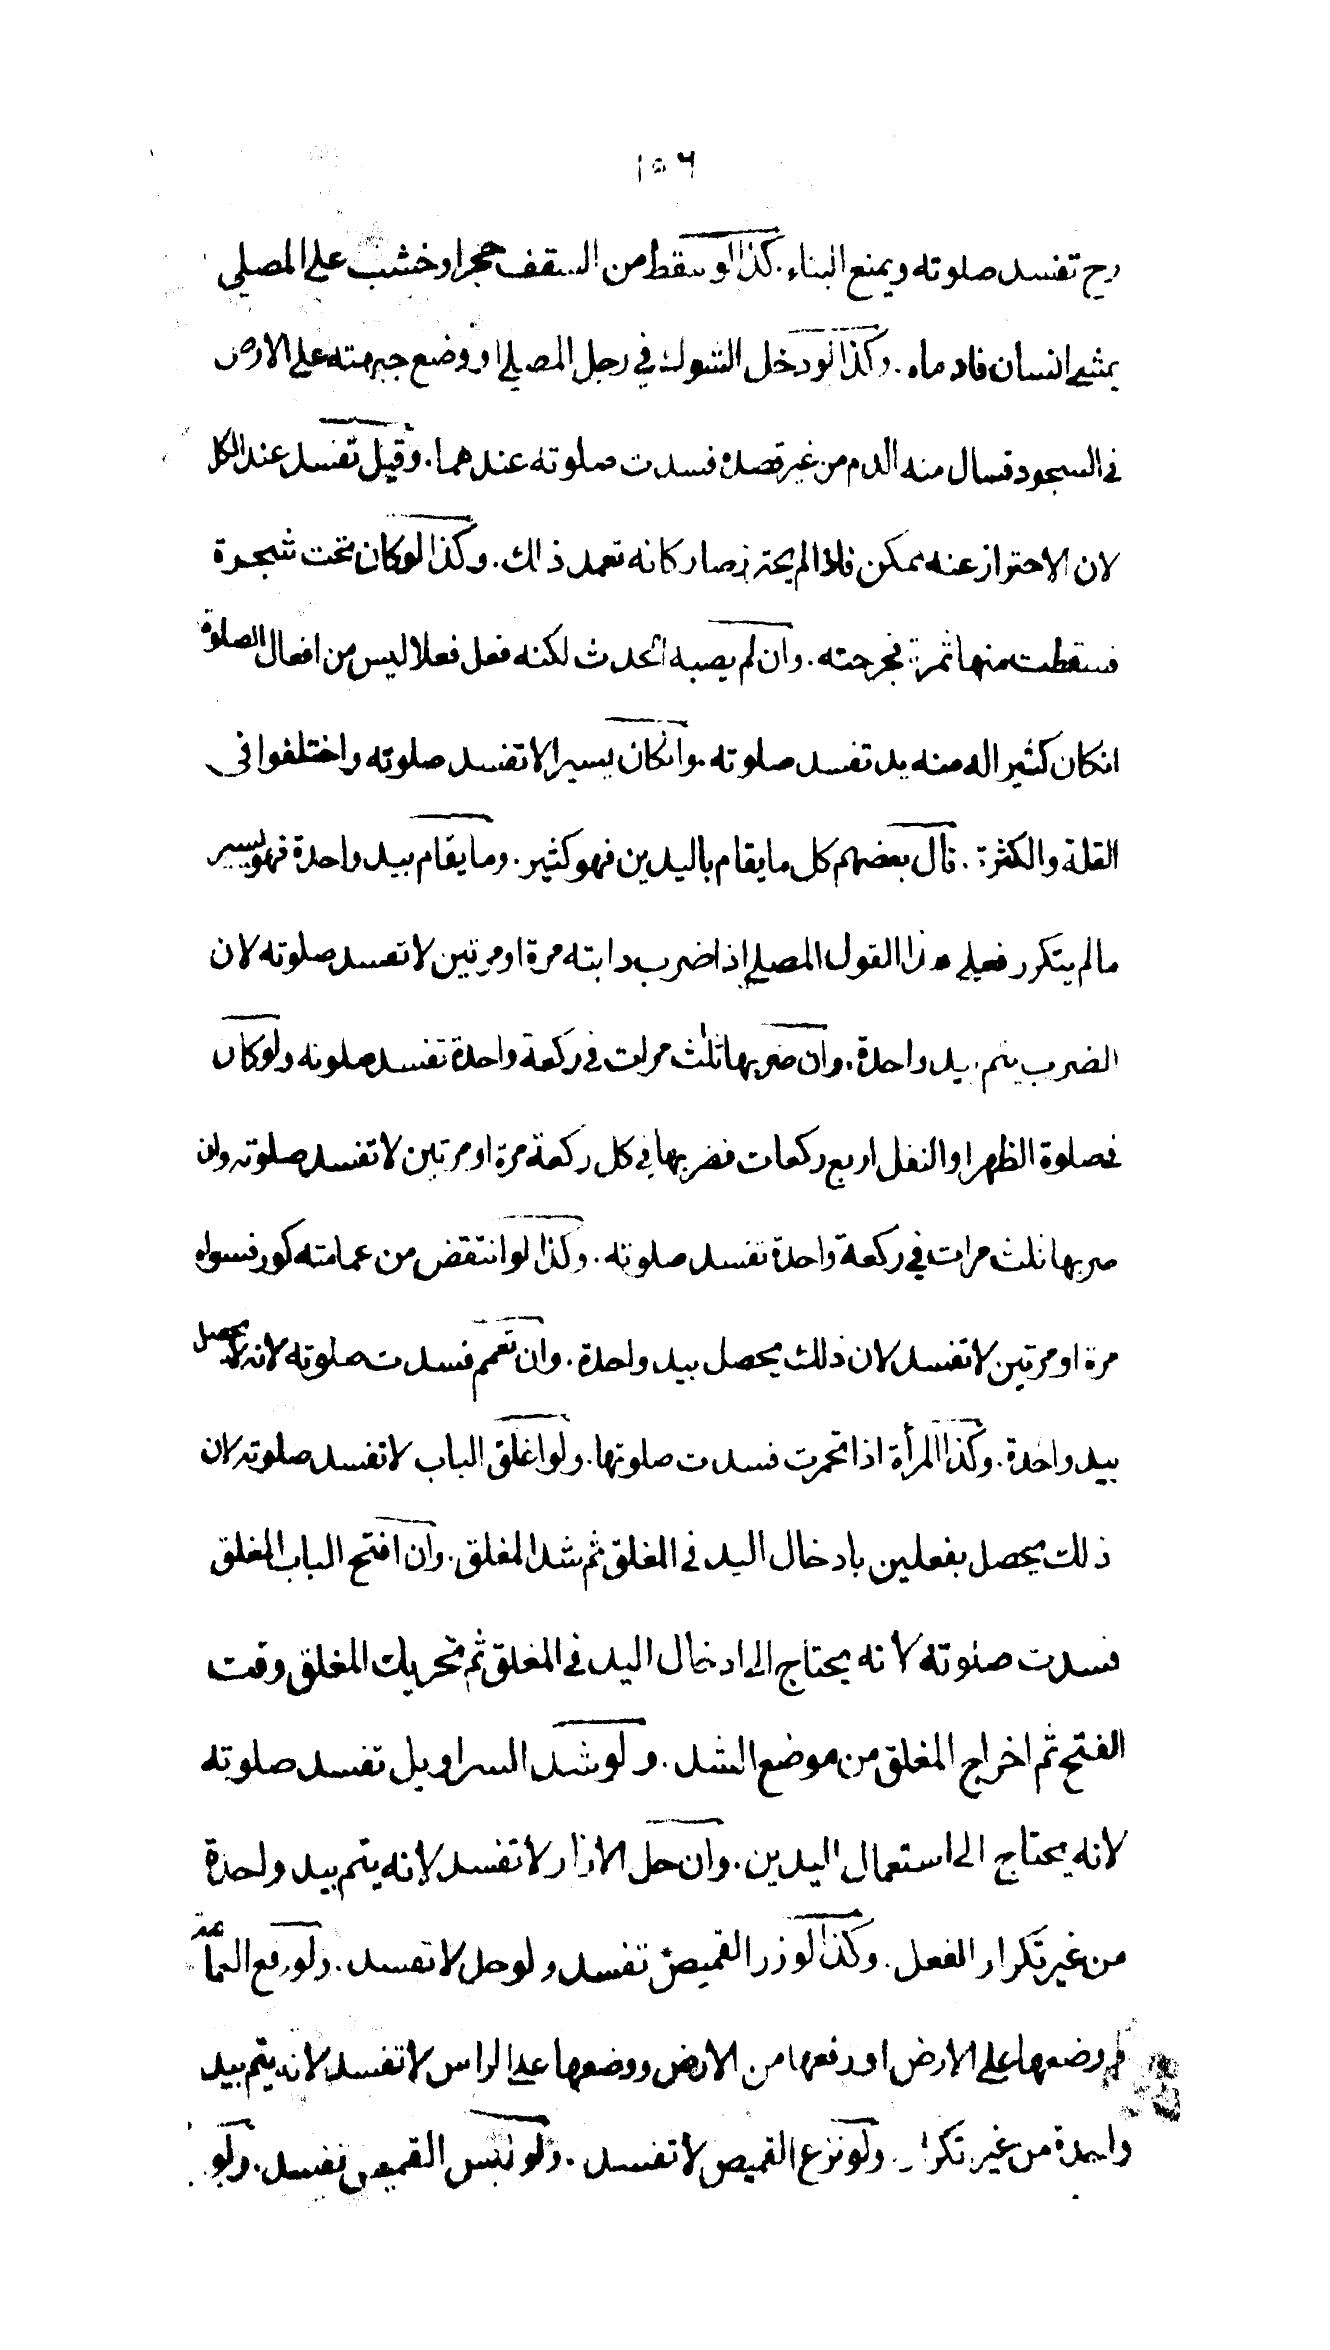 ١٥٦
رح تفسد صلوته ويمنع البناء. كذا لو سقط من السقف حجرا وخشب على المصلي
بمشي انسان فادماه. وكذا لو دخل الشوك في رجل المصلي او وضع جبهته على الارض
في السجود فسال منه الدم من غير قصده فسدت صلوته عندهما. وقيل تفسد عند الكل
لان الاحتراز عنه ممكن فاذا لم يحترز صار كانه تعمد ذلك. وكذا لو كان تحت شجرة
فسقطت منها ثمرة فجرحته. وان لم يصبه الحدث لكنه فعل فعلا ليس من افعال الصلوة
انكان كثيرا له منه بد تفسد صلوته. وانكان يسيرا لا تفسد صلوته واختلفوا في
القلة والكثرة. قال بعضهم كل ما يقام باليدين فهو كثير. وما يقام بيد واحدة فهو يسير
مالم يتكرر فعلى هذا القول المصلي اذا ضرب دابته مرة او مرتين لا تفسد صلوته لان
الضرب يتم بيد واحدة. وان ضربها ثلث مرات في ركعة واحدة تفسد صلوته ولو كان
في صلوة الظهر او النفل اربع ركعات فضربها في كل ركعة مرة او مرتين لا تفسد صلوته وان
ضربها ثلث مرات في ركعة واحدة تفسد صلوته. وكذا لو انتقض من عمامته كور فسواه
مرة او مرتين لا تفسد لان ذلك يحصل بيد واحدة. وان تعمم فسدت صلوته لانه لا يحصل
بيد واحدة. وكذا المرأة اذا تخمرت فسدت صلوتها. ولو اغلق الباب لا تفسد صلوته لان
ذلك يحصل بفعلين بادخال اليد في المغلق ثم شد المغلق. وان افتح الباب المغلق
فسدت صلوته لانه يحتاج الى ادخال اليد في المغلق ثم تحريك المغلق وقت
الفتح ثم اخراج المغلق من موضع الشد. ولو شد السراويل تفسد صلوته
لانه يحتاج الى استعمال اليدين. وان حل الازار لا تفسد لانه يتم بيد واحدة
من غير تكرار الفعل. وكذا لو زر القميص تفسد ولو حل لا تفسد. ولو رفع العمامة
ووضعها على الارض او رفعها من الارض ووضعها على الراس لا تفسد لانه يتم بيد
واحدة من غير تكرار. ولو نزع القميص لا تفسد. ولو لبس القميص تفسد. ولو